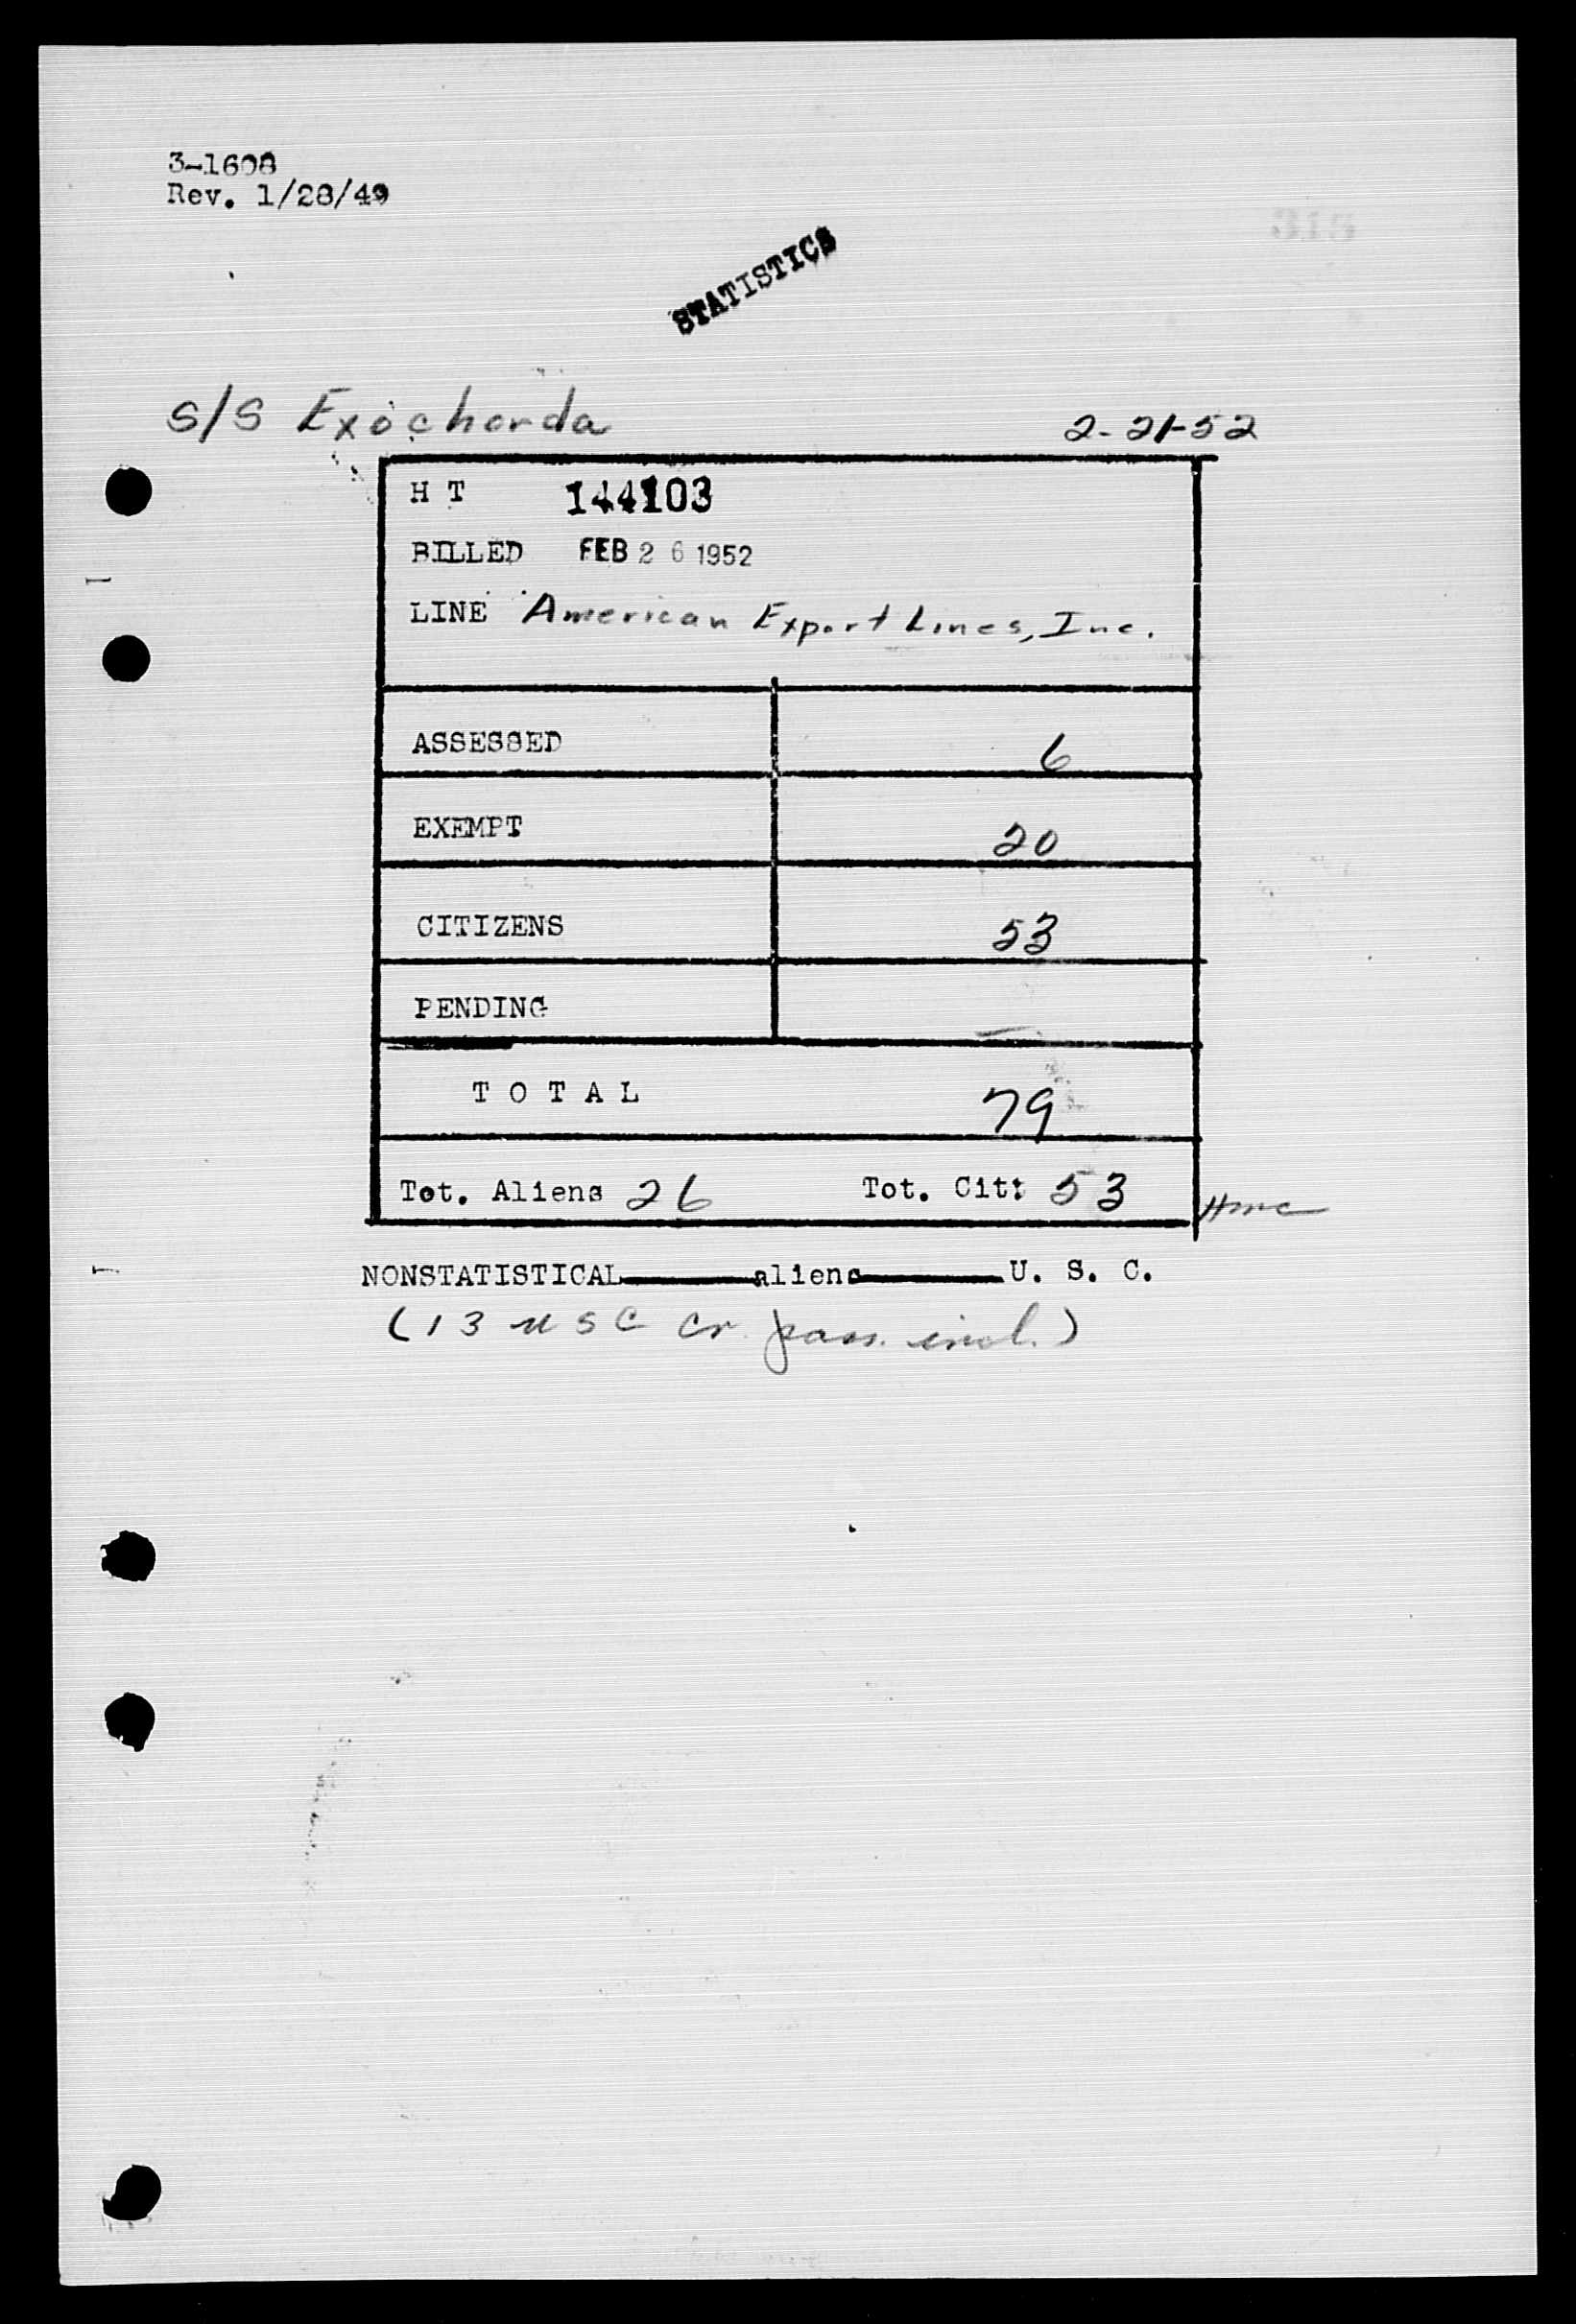 3-1608
Rev. 1/28/49
STATISTICS
S/S Exochorda 2-21-52
H T 144103
BILLED FEB 26 1952
LINE American Export Lines, Inc.
ASSESSED 6
EXEMPT 20
CITIZENS 53
PENDING
T O T A L 79
Tot. Aliens 26 Tot. Cit: 53
NONSTATISTICAL aliens U. S. C.
(13 USC Cr. pass. incl.)